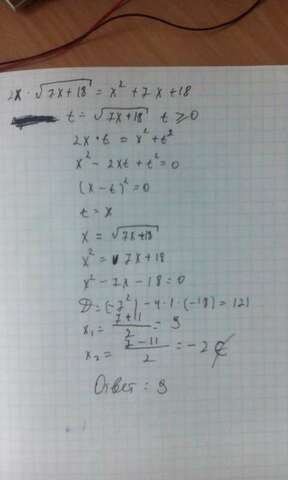 2x · √7x+18 = x² + 7x + 18
t = √7x+18 t ≥ 0
2x · t = x² + t²
x² - 2xt + t² = 0
(x - t)² = 0
t = x
x = √7x+18
x² = 7x + 18
x² - 7x - 18 = 0
D = (-7²) - 4 · 1 · (-18) = 121
x₁ = (7+11)/2 = 9
x₂ = (7-11)/2 = -2 ∉
Ответ : 9